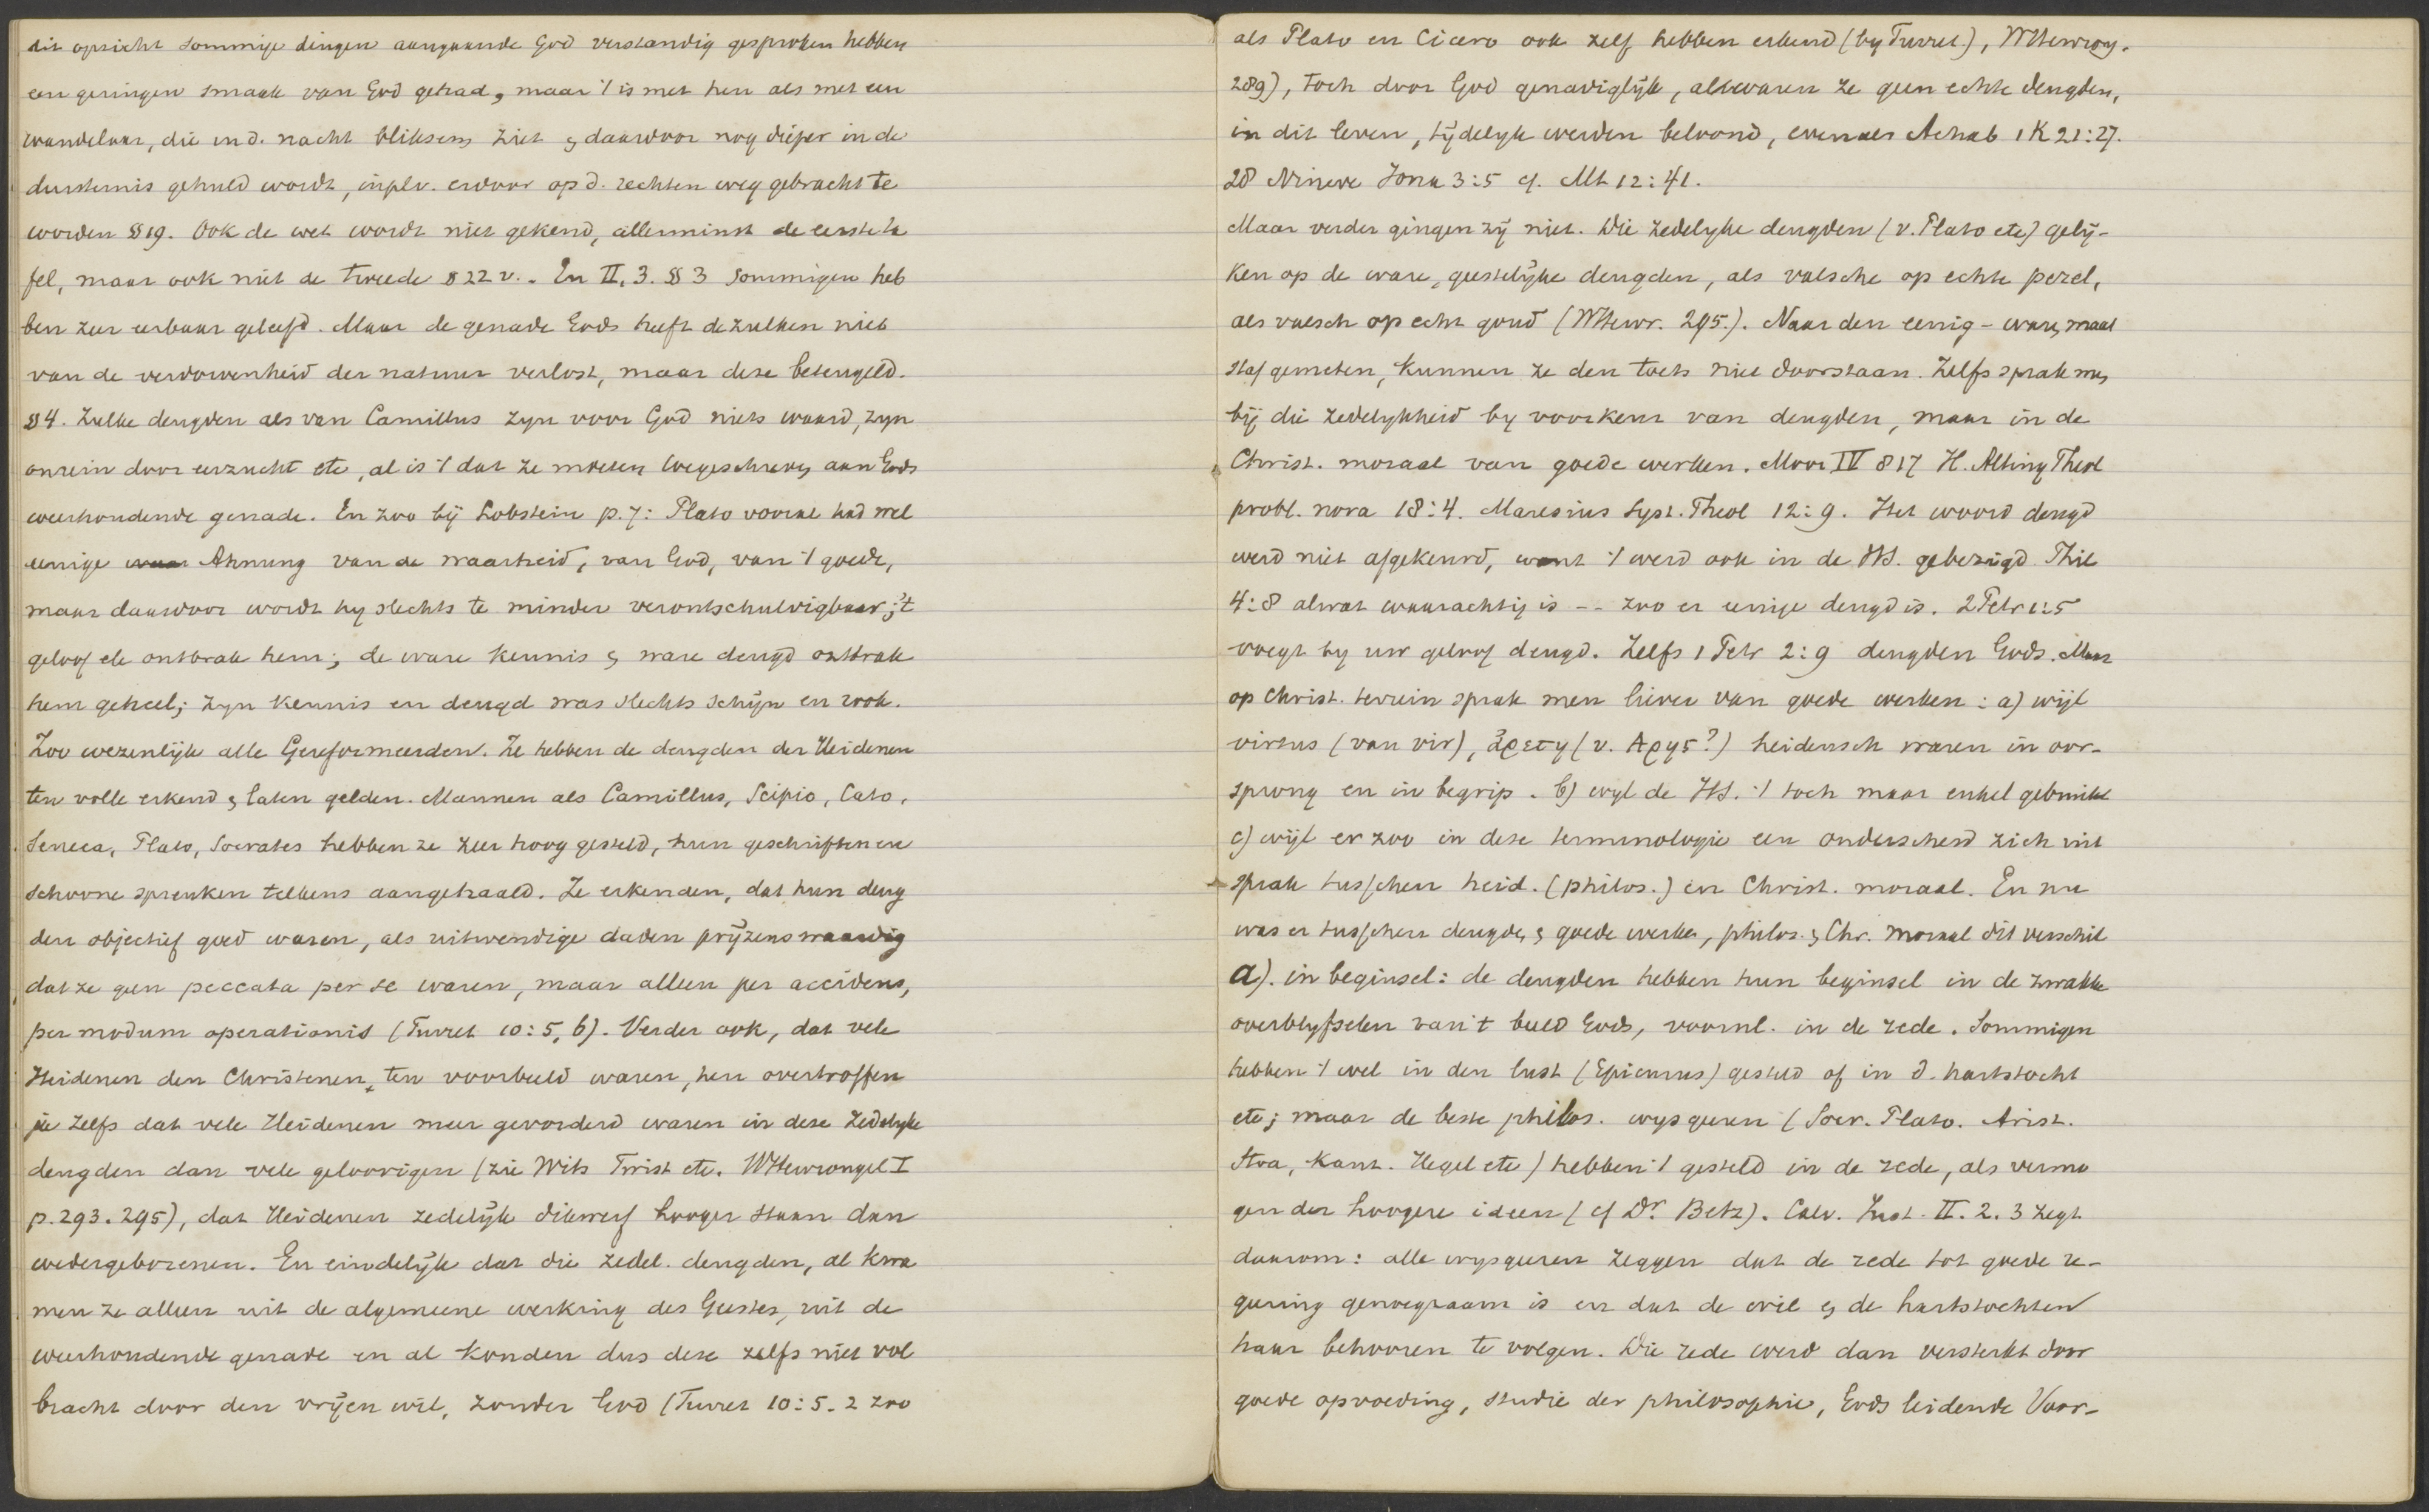 dit opzicht sommige dingen aangaande God verstandig gesproken hebben
een geringen smaak van God gehad, maar 't is met hen als met een
wandelaar, die in d. nacht bliksem ziet & daardoor nog dieper in de
duisternis gehuld wordt, in plv. erdoor op d. rechten weg gebracht te
worden §19. Ook de wet wordt niet gekend, allerminst de eerste ta
fel, maar ook niet de tweede §22 v. . En II, 3. §3 Sommigen heb
ben zeer eerbaar geleefd. Maar de genade Gods heeft dezulken niet
van de verdorvenheid der natuur verlost, maar deze beteugeld.
§4. Zulke deugden als van Camillus zyn voor God niets waard, zyn
onrein door eerzucht etc, al is 't dat ze moeten toegeschreven aan Gods
weerhoudende genade. En zoo bij Lobstein p. 7: Plato vooral had wel
eenige Ahnung van de waarheid, van God, van 't goede,
maar daardoor wordt hy slechts te minder verontschuldigbaar; 't
geloof etc ontbrak hem; de ware kennis & ware deugd ontbrak
hem geheel; zyn kennis en deugd was slechts schijn en rook.
Zoo wezenlijk alle Gereformeerden. Ze hebben de deugden der Heidenen
ten volle erkend & laten gelden. Mannen als Camillus, Scipio, Cato,
Seneca, Plato, Socrates hebben ze zeer hoog gesteld, hun geschriften en
schoone spreuken telkens aangehaald. Ze erkenden, dat hun deug
den objectief goed waren, als uitwendige daden prijzenswaardig
dat ze geen peccata per se waren, maar alleen per accidens,
per modum operationis (Turret 10:5, 6). Verder ook, dat vele
Heidenen den Christenen ten voorbeeld waren, hen overtroffen
ja zelfs dat vele Heidenen meer gevorderd waren in deze zedelyke
deugden dan vele geloovigen (zie Wits Twist etc. Wttewrongel I
p. 293. 295), dat Heidenen zedelijk dikwerf hooger staan dan
wedergeborenen. En eindelijk dat die zedel. deugden, al kwa
men ze alleen uit de algemeene werking des Geestes, uit de
weerhoudende genade en al konden dus deze zelfs niet vol
bracht door den vrijen wil, zonder God (Turret 10:5. 2 zoo
als Plato en Cicero ook zelf hebben erkend (by Turret.), Wttewrong.
289), toch door God genadiglijk, alhoewel ze geen echte deugden,
in dit leven, tijdelyk werden beloond, evenals Achab 1 K 21:27.
28 Nineve Jona 3:5 cf. Mt 12:41.
Maar verder gingen zij niet. Die zedelyke deugden (v. Plato etc) gelij-
ken op de ware, geestelijke deugden, als valsche op echte perel,
als valsch op echt goud (Wttewr. 295.). Naar den eenig-waren maat
staf gemeten, kunnen ze den toets niet doorstaan. Zelfs sprak men
bij die zedelykheid by voorkeur van deugden, maar in de
Christ. moraal van goede werken. Moor IV 817 H. Alting Theol
probl. nova 18:4. Maresius Syst. Theol 12:9. Het woord deugd
werd niet afgekeurd, want 't werd ook in de HS. gebezigd Phil
4:8 alwat waarachtig is -- zoo er eenige deugd is. 2 Petr 1:5
voegt by uw geloof deugd. Zelfs 1 Petr 2:9 deugden Gods. Maar
op christ. terrein sprak men liever van goede werken: a) wijl
virtus (van vir), ἀρετη (v. Αρης?) heidensch waren in oor-
sprong en in begrip. b) wyl de HS. 't toch maar enkel gebruikt
c) wijl er zoo in deze terminologie een onderscheid zich uit
sprak tusschen heid. (philos.) en Christ. moraal. En nu
was er tusschen deugden & goede werken, philos. & Chr. moraal dit verschil
a). in beginsel: de deugden hebben hun beginsel in de zwakke
overblyfselen van 't beeld Gods, vooral. in de rede. Sommigen
hebben 't wel in den lust (Epicurus) gesteld of in d. hartstocht
etc; maar de beste philos. wysgeeren (Socr. Plato. Arist.
Stoa, Kant. Hegel etc) hebben 't gesteld in de rede, als vermo
gen der hoogere ideen (cf Dr. Betz). Calv. Inst. II. 2. 3 zegt
daarom: alle wysgeeren zeggen dat de rede tot goede re-
geering genoegzaam is en dat de wil & de hartstochten
haar behooren te volgen. Die rede werd dan versterkt door
goede opvoeding, studie der philosophie, Gods leidende Voor-